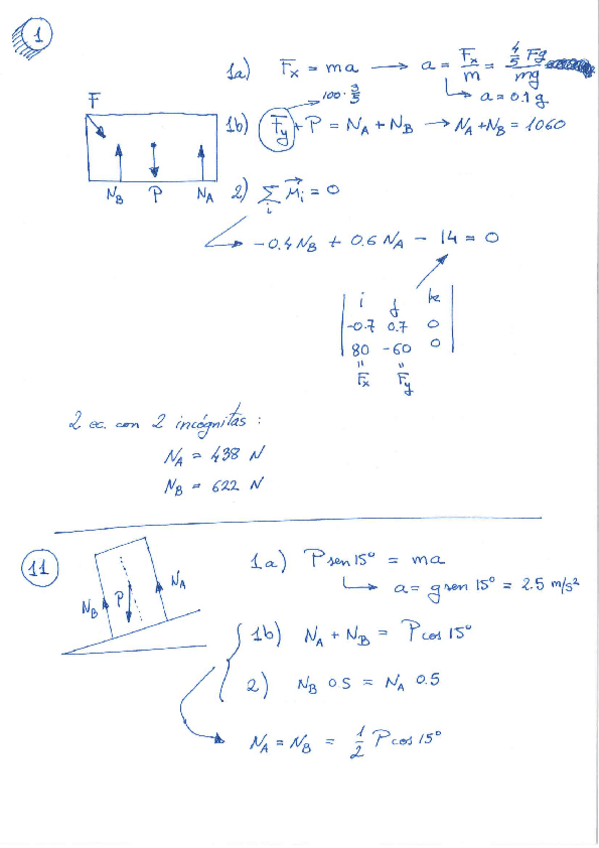 1
1a) Fx = ma → a = Fx/m = 4/5 Fg/mg
→ a = 0.1 g
F
100·3/5
1b) Fy + P = NA + NB → NA + NB = 1060
NB P NA
2) Σi M⃗i = 0
→ -0.4 NB + 0.6 NA - 14 = 0
i j k
-0.7 0.7 0
80 -60 0
" "
Fx Fy
2 ec. con 2 incógnitas:
NA = 438 N
NB = 622 N
11
1a) P sen 15° = ma
→ a = g sen 15° = 2.5 m/s²
NB P NA
1b) NA + NB = P cos 15°
2) NB 0.5 = NA 0.5
NA = NB = 1/2 P cos 15°